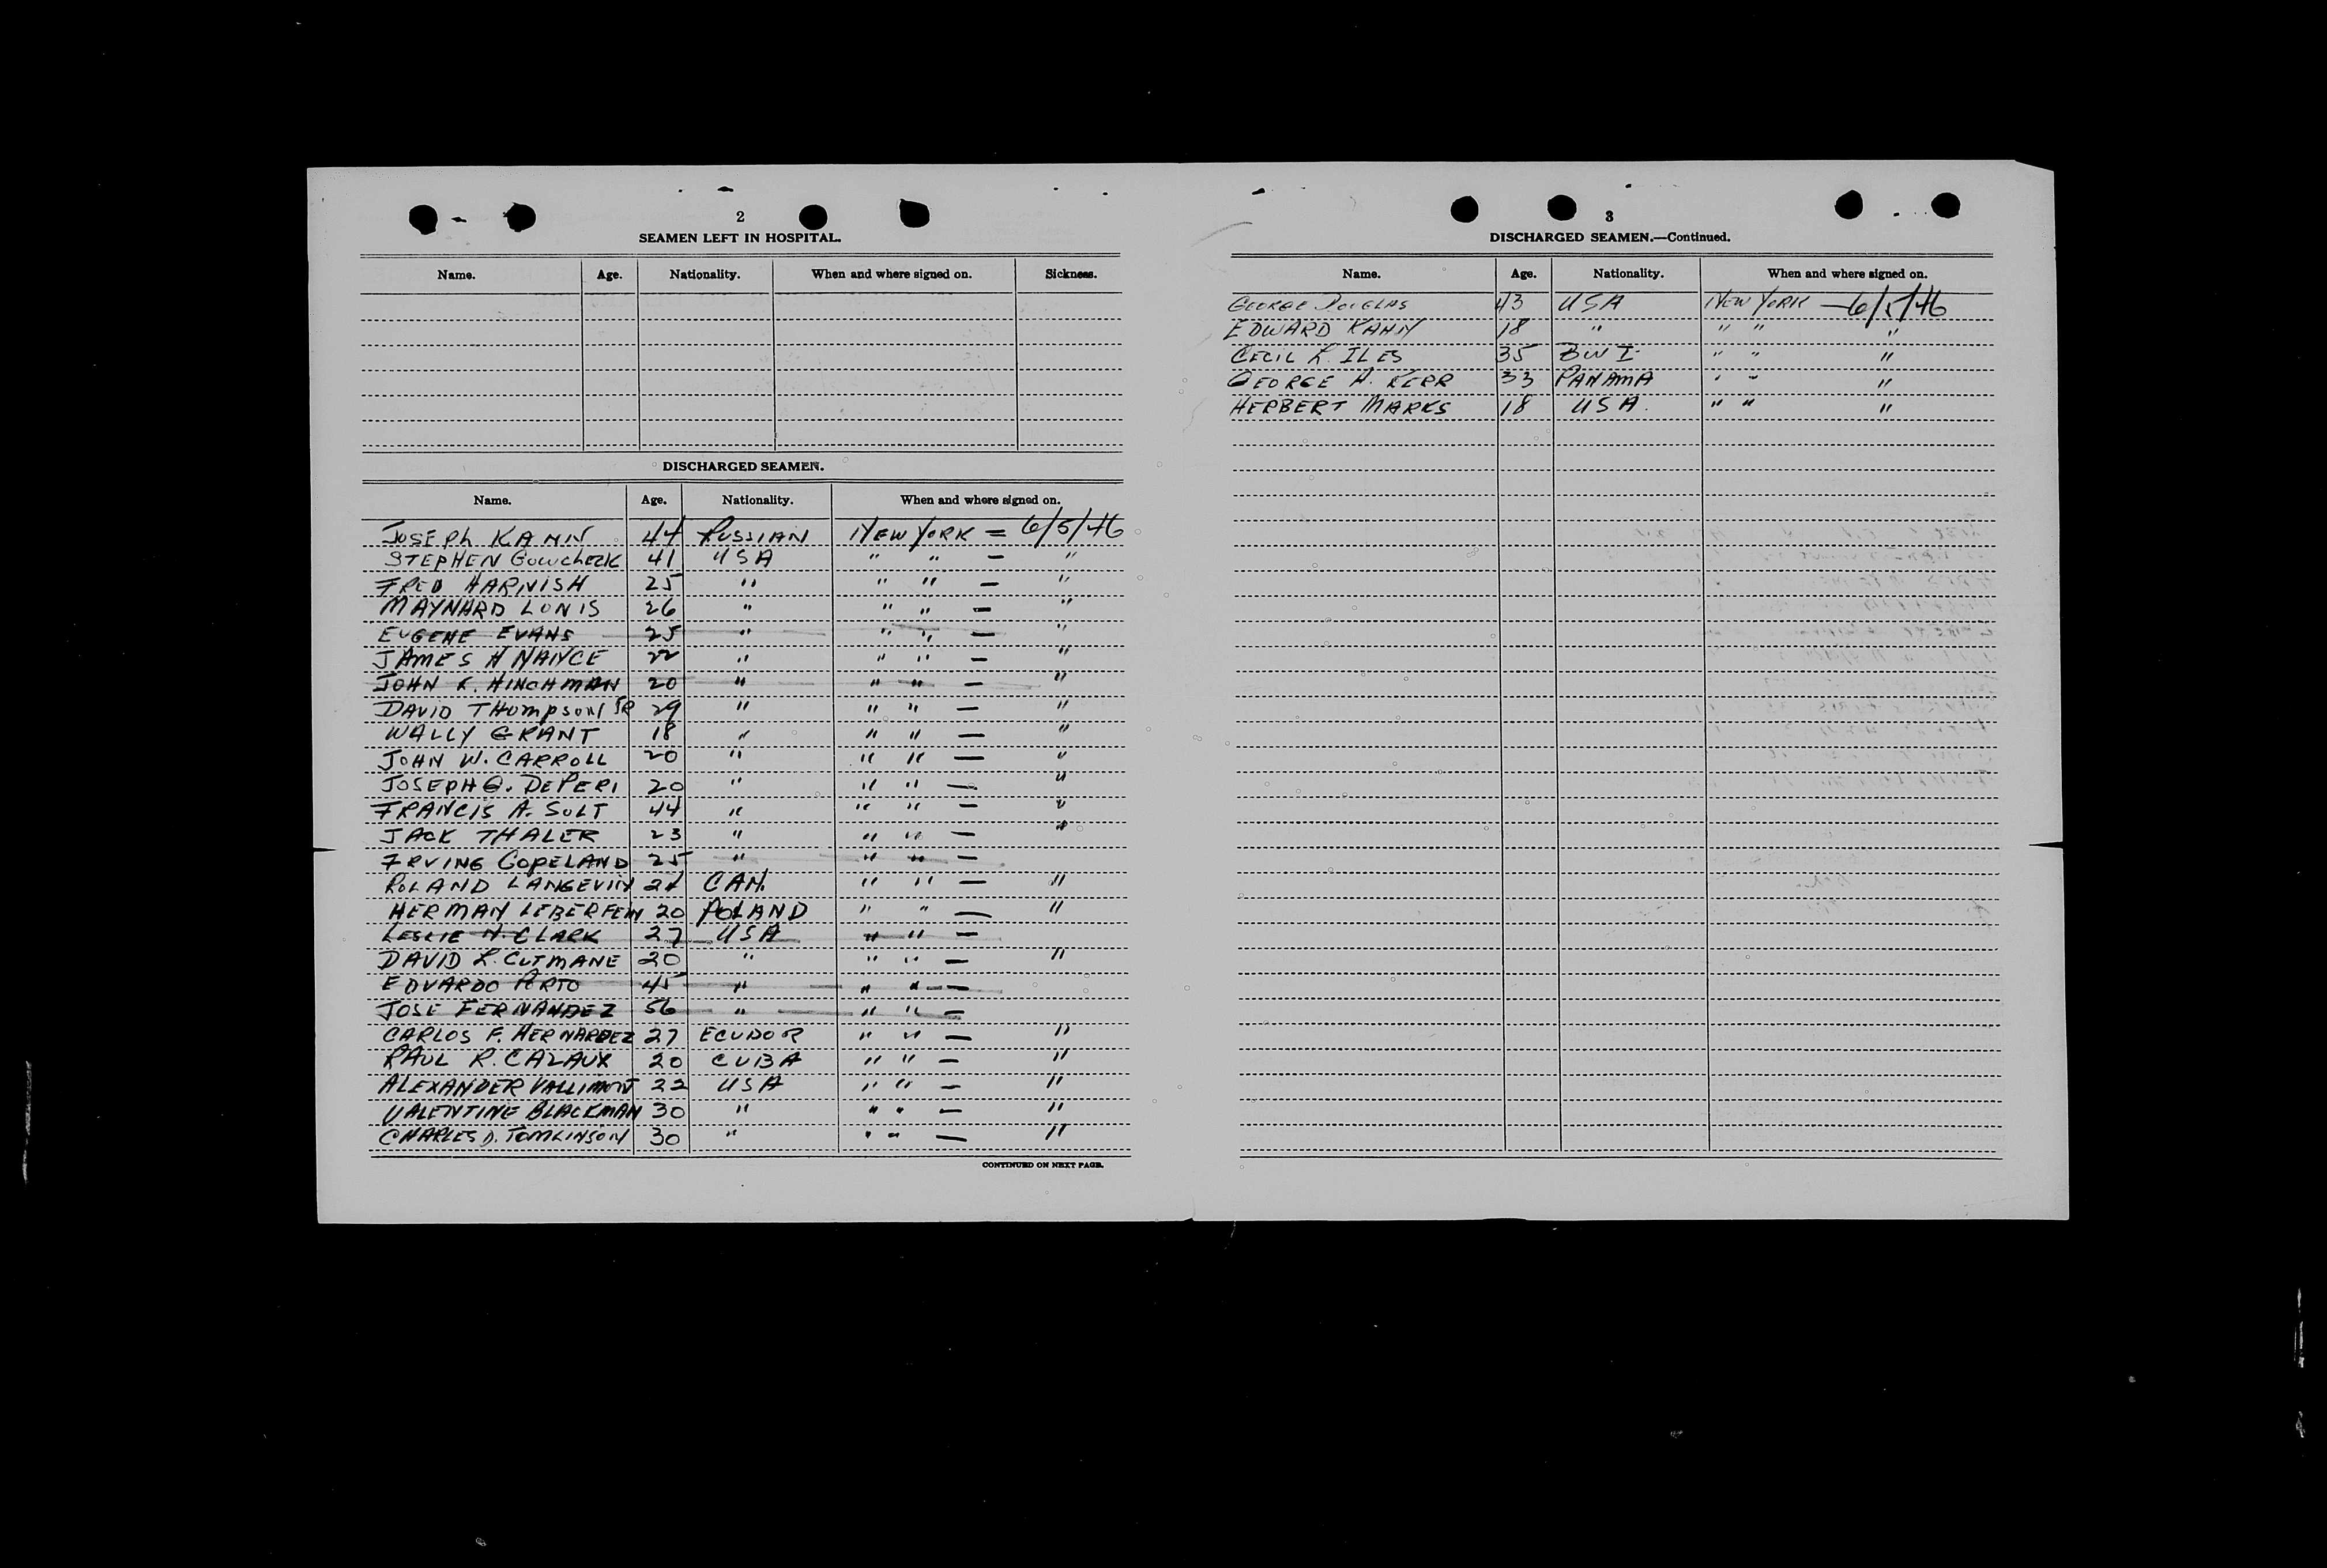 2
SEAMEN LEFT IN HOSPITAL.
Name. Age. Nationality. When and where signed on. Sickness.
DISCHARGED SEAMEN.
Name. Age. Nationality. When and where signed on.
JOSEPH KAHN 44 RUSSIAN NEW YORK = 6/5/46
STEPHEN 41 USA " " — "
FRED HARNISH 25 " " " — "
MAYNARD LONIS 26 " " " — "
EUGENE EVANS 25 " " " — "
JAMES H NANCE 22 " " " — "
JOHN F. HINCHMAN 20 " " " — "
DAVID THOMPSON SR 29 " " " — "
WALLY GRANT 18 " " " — "
JOHN W. CARROLL 20 " " " — "
JOSEPH G. DEPERI 20 " " " — "
FRANCIS A. SULT 44 " " " — "
JACK THALER 23 " " " — "
IRVING COPELAND 25 " " " —
ROLAND LANGEVIN CAN. " " — "
HERMAN LEBERFEIN 20 POLAND " " — "
LESLIE N. CLARK 27 USA " " —
DAVID L. CUTMANE 20 " " " — "
EDVARDO PORTO 45 " " " —
JOSE FERNANDEZ 56 " " " —
CARLOS F. HERNANDEZ 27 ECUDOR " " — "
PAUL R. CALAUX 20 CUBA " " — "
ALEXANDER VALLIMONT 22 USA " " — "
VALENTINE BLACKMAN 30 " " " — "
CHARLES D. TOMLINSON 30 " " " — "
CONTINUED ON NEXT PAGE.
3
DISCHARGED SEAMEN.—Continued.
Name. Age. Nationality. When and where signed on.
GEORGE DOUGLAS 43 USA NEW YORK — 6/5/46
EDWARD KAHN 18 " " " "
CECIL L. ILES 35 BWI " " "
GEORGE A. KERR 33 PANAMA " " "
HERBERT MARKS 18 USA. " " "